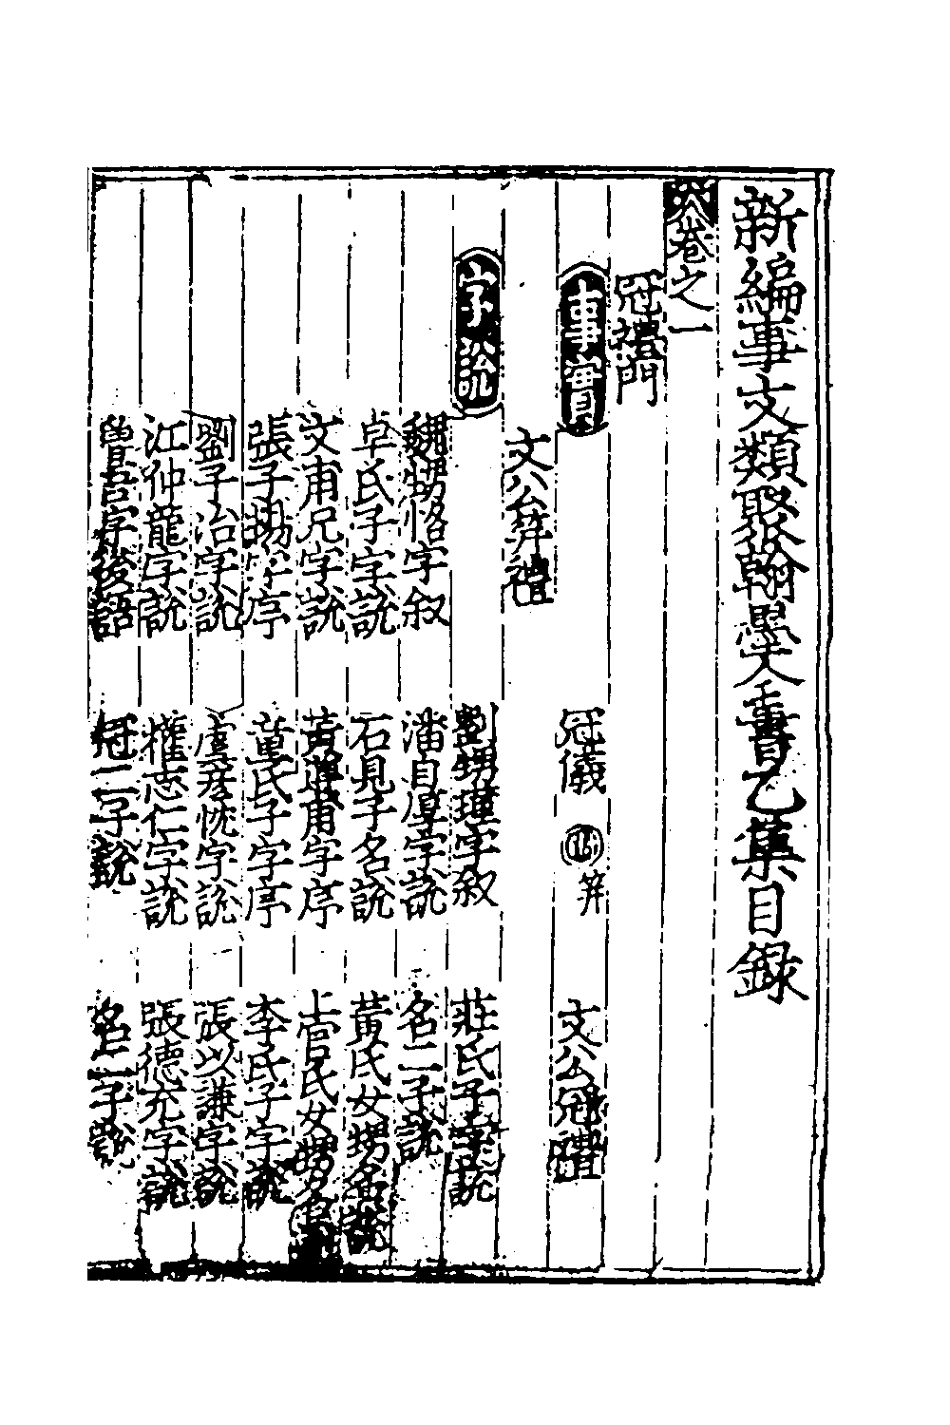 新編事文類聚翰墨大全書乙集目錄
卷之一
冠禮門
事實 冠儀 笄 文公冠禮
文公笄禮
字說 劉甥瑾字叙 莊氏子字說
魏甥恪字叙 潘自厚字說 名二子說
卓氏子字說 石見子名說 黃氏女甥名說
文甫兄字說 黃甫字序 管氏女甥名
張子字序 董氏子字序 李氏子字說
劉子冶字說 虞彥忱字說 張以謙字說
江仲龍字說 權志仁字說 張德充字說
曾吾字後語 冠二子說 名二子說